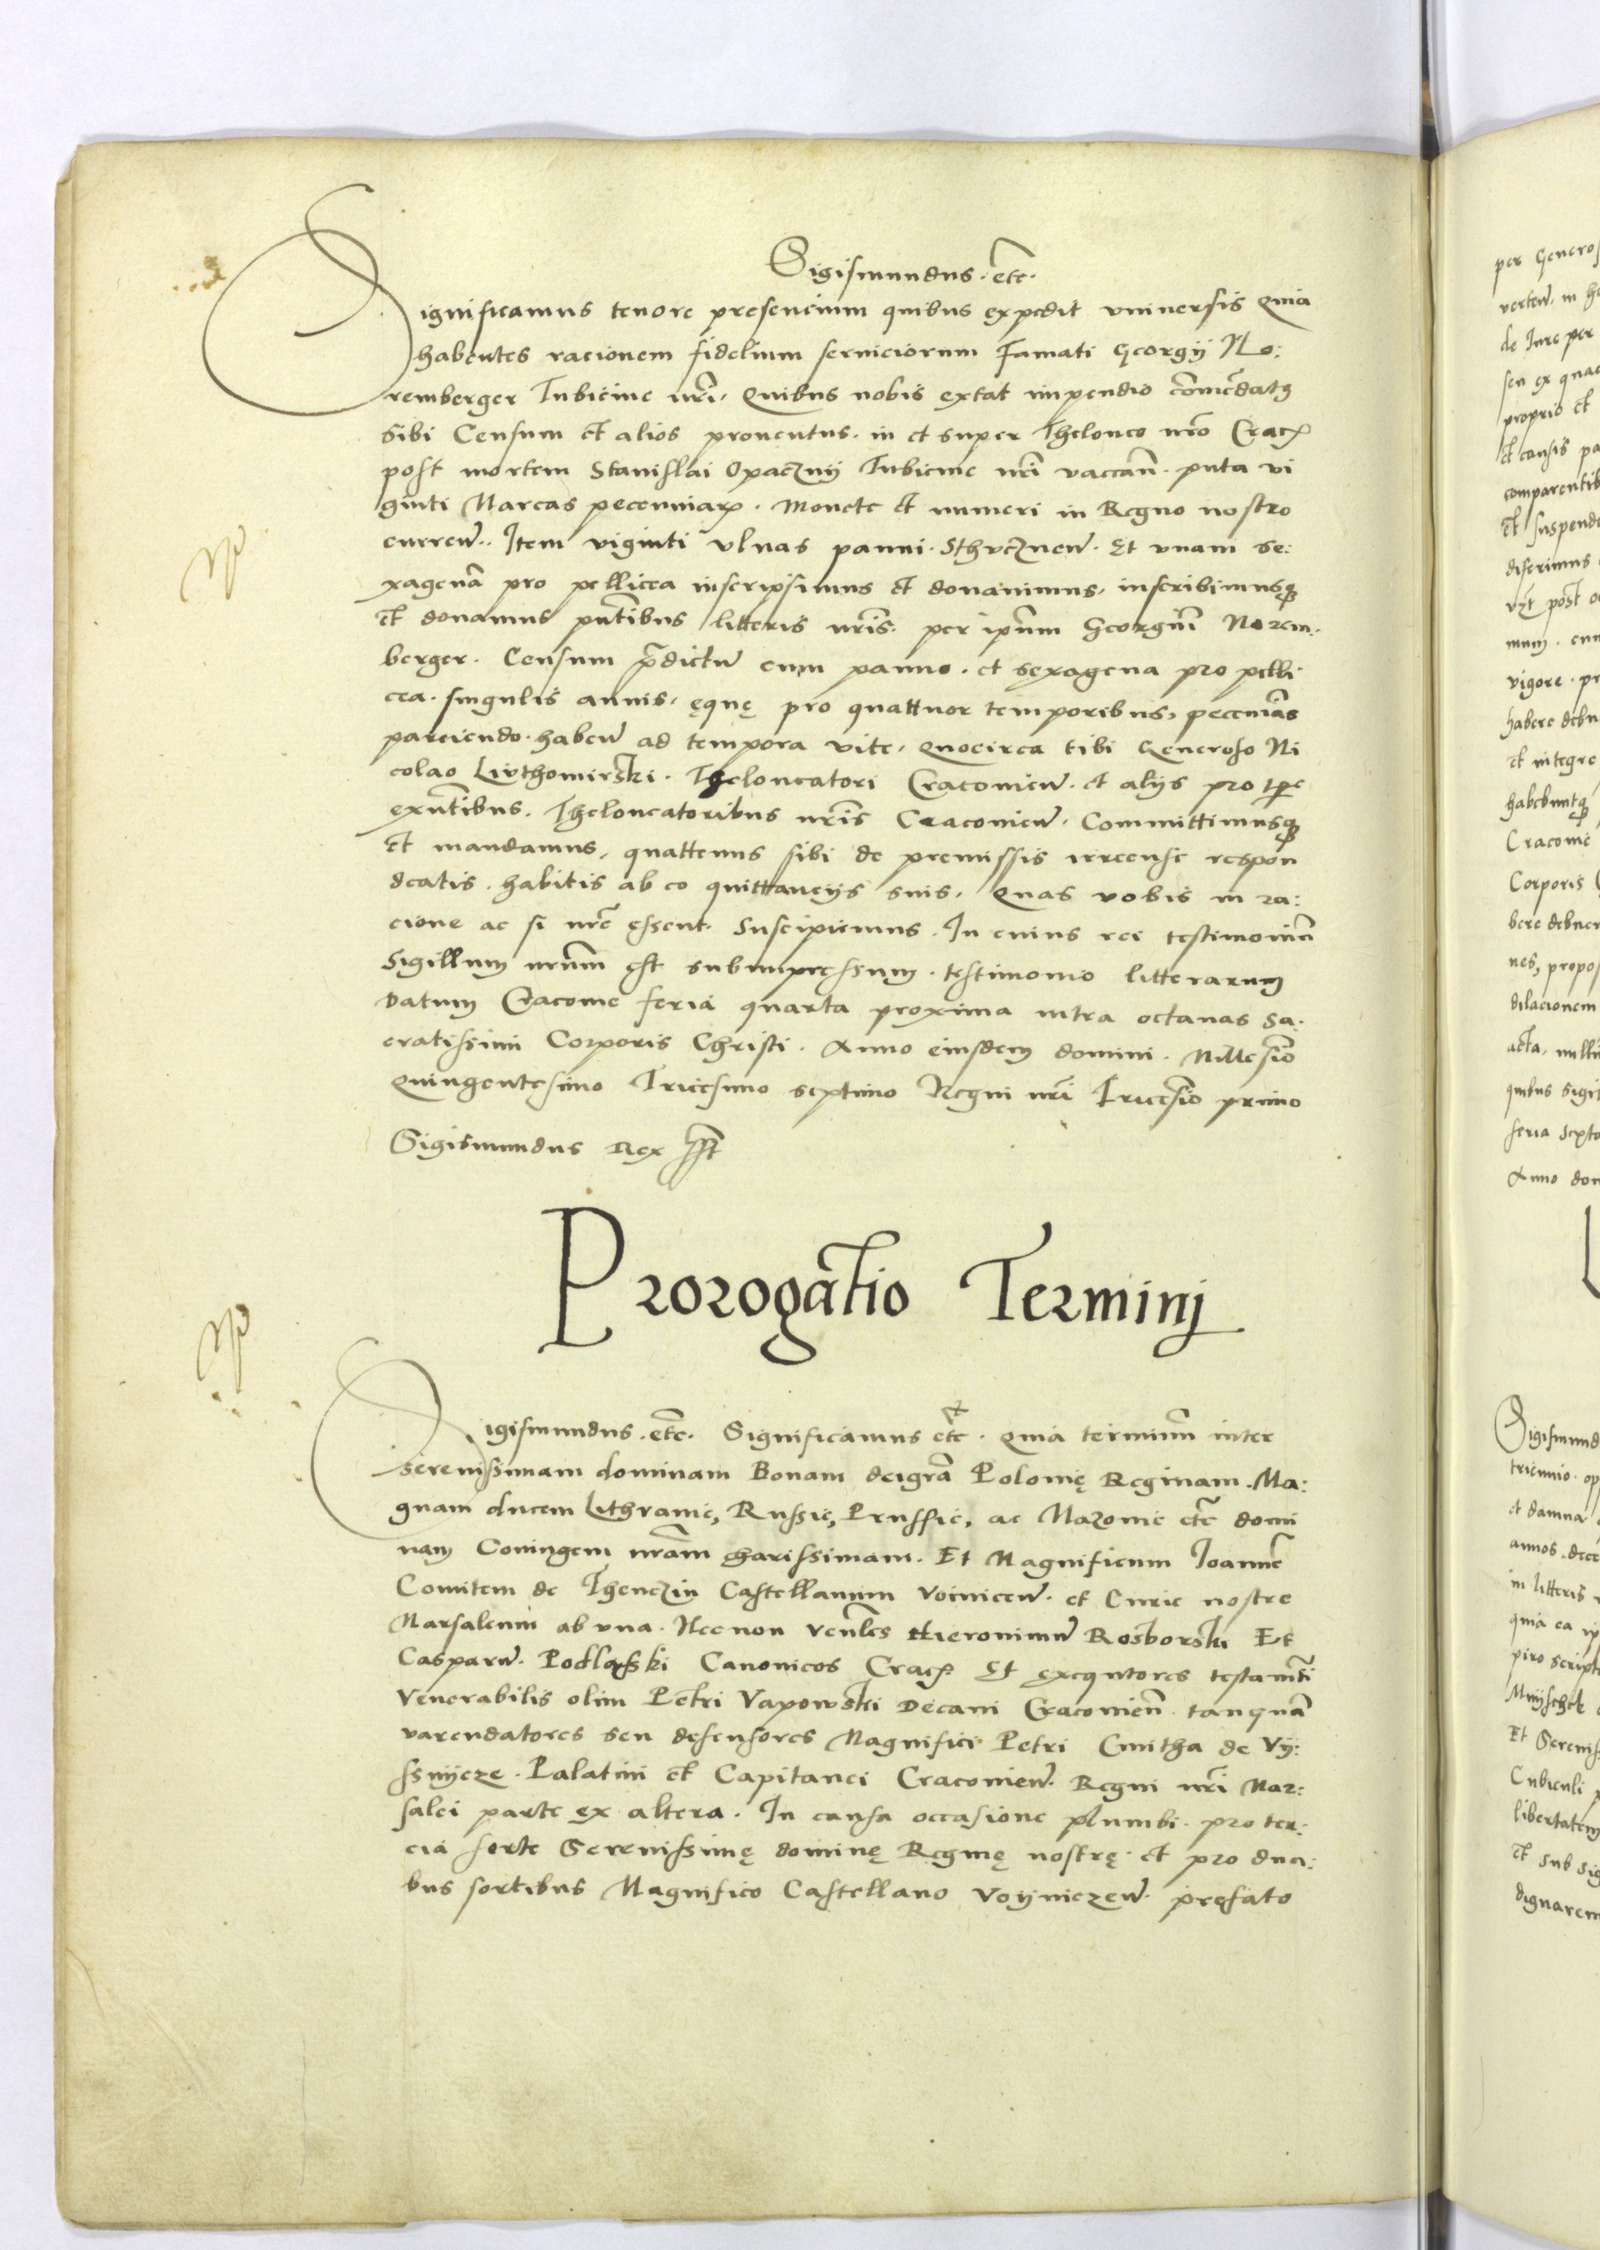 Sigismundus. etc.
Significamus tenore presencium quibus expedit vniuersis Quia
habentes racionem fidelium seruiciorum Famati Georgij No:
remberger Tubicine nri, Quibus nobis extat impendio comedatus
Sibi Censum et alios prouentus. in et super Theloneo nro Crac
post mortem Stanislai Opacznij Tubicine nri vaccan. puta vi
ginti Marcas pecuniar. Monete et numeri in Regno nostro
curren. Item viginti vlnas panni. Sthucznen. Et vnam se:
xagena pro pellicea inscripsimus et donauimus, inscribimusq
et donamus pntibus litteris nris. per ipum Georgium Norem
berger. Censum pdictu cum panno. et sexagena pro pelli
cea. singulis annis, ęquę pro quattuor temporibus, pecunias
parciendo. haben ad tempora vite, Quocirca tibi Generoso Ni
colao Luthomirski. Theloneatori Cracouien. et alijs pro tpe
exntibus. Theloneatoribus nris Cracouien. Committimusq
et mandamus, quattenus sibi de premissis irrecuse respon
deatis. habitis ab eo quittancijs suis. Quas vobis in ra:
cione ac si nre essent. Suscipiemus. In cuius rei testimoniu
Sigillum nrum est subimpressum. testimonio litterarum
Datum Cracouie feria quarta proxima intra octauas Sa.
cratissimi Corporis Christi. Anno eiusdem domini. Millesio
Quingentesimo Tricesimo septimo Regni nri Tricesio primo
Sigismundus Rex sst
Prorogatio Terminj
Sigismundus. etc. Significamus etc. Quia terminum inter
Serenissimam dominam Bonam deigra Polonię Reginam. Ma:
gnam ducem Lithvanie, Russie, Prussie, ac Mazouie etc domi
nam Coniugem nram charissimam. Et Magnificum Ioanne
Comitem de Thenczin Castellanum Voinicen. et Curie nostre
Marsalcum ab vna. Necnon Venles Hieronimu Rosborski Et
Casparu. Podlasski Canonicos Crac Et exequtores testamti
Venerabilis olim Petri Vapowski Decani Cracouien tanqua
varendatores seu defensores Magnifici Petri Cmitha de Vij:
ssnijcze. Palatini et Capitanei Cracouien. Regni nri Mar:
salci parte ex altera. In causa occasione plumbi. pro ter:
cia sorte Serenissimę dominę Reginę nostrę et pro dua:
bus sortibus Magnifico Castellano Voijniczen. prefato